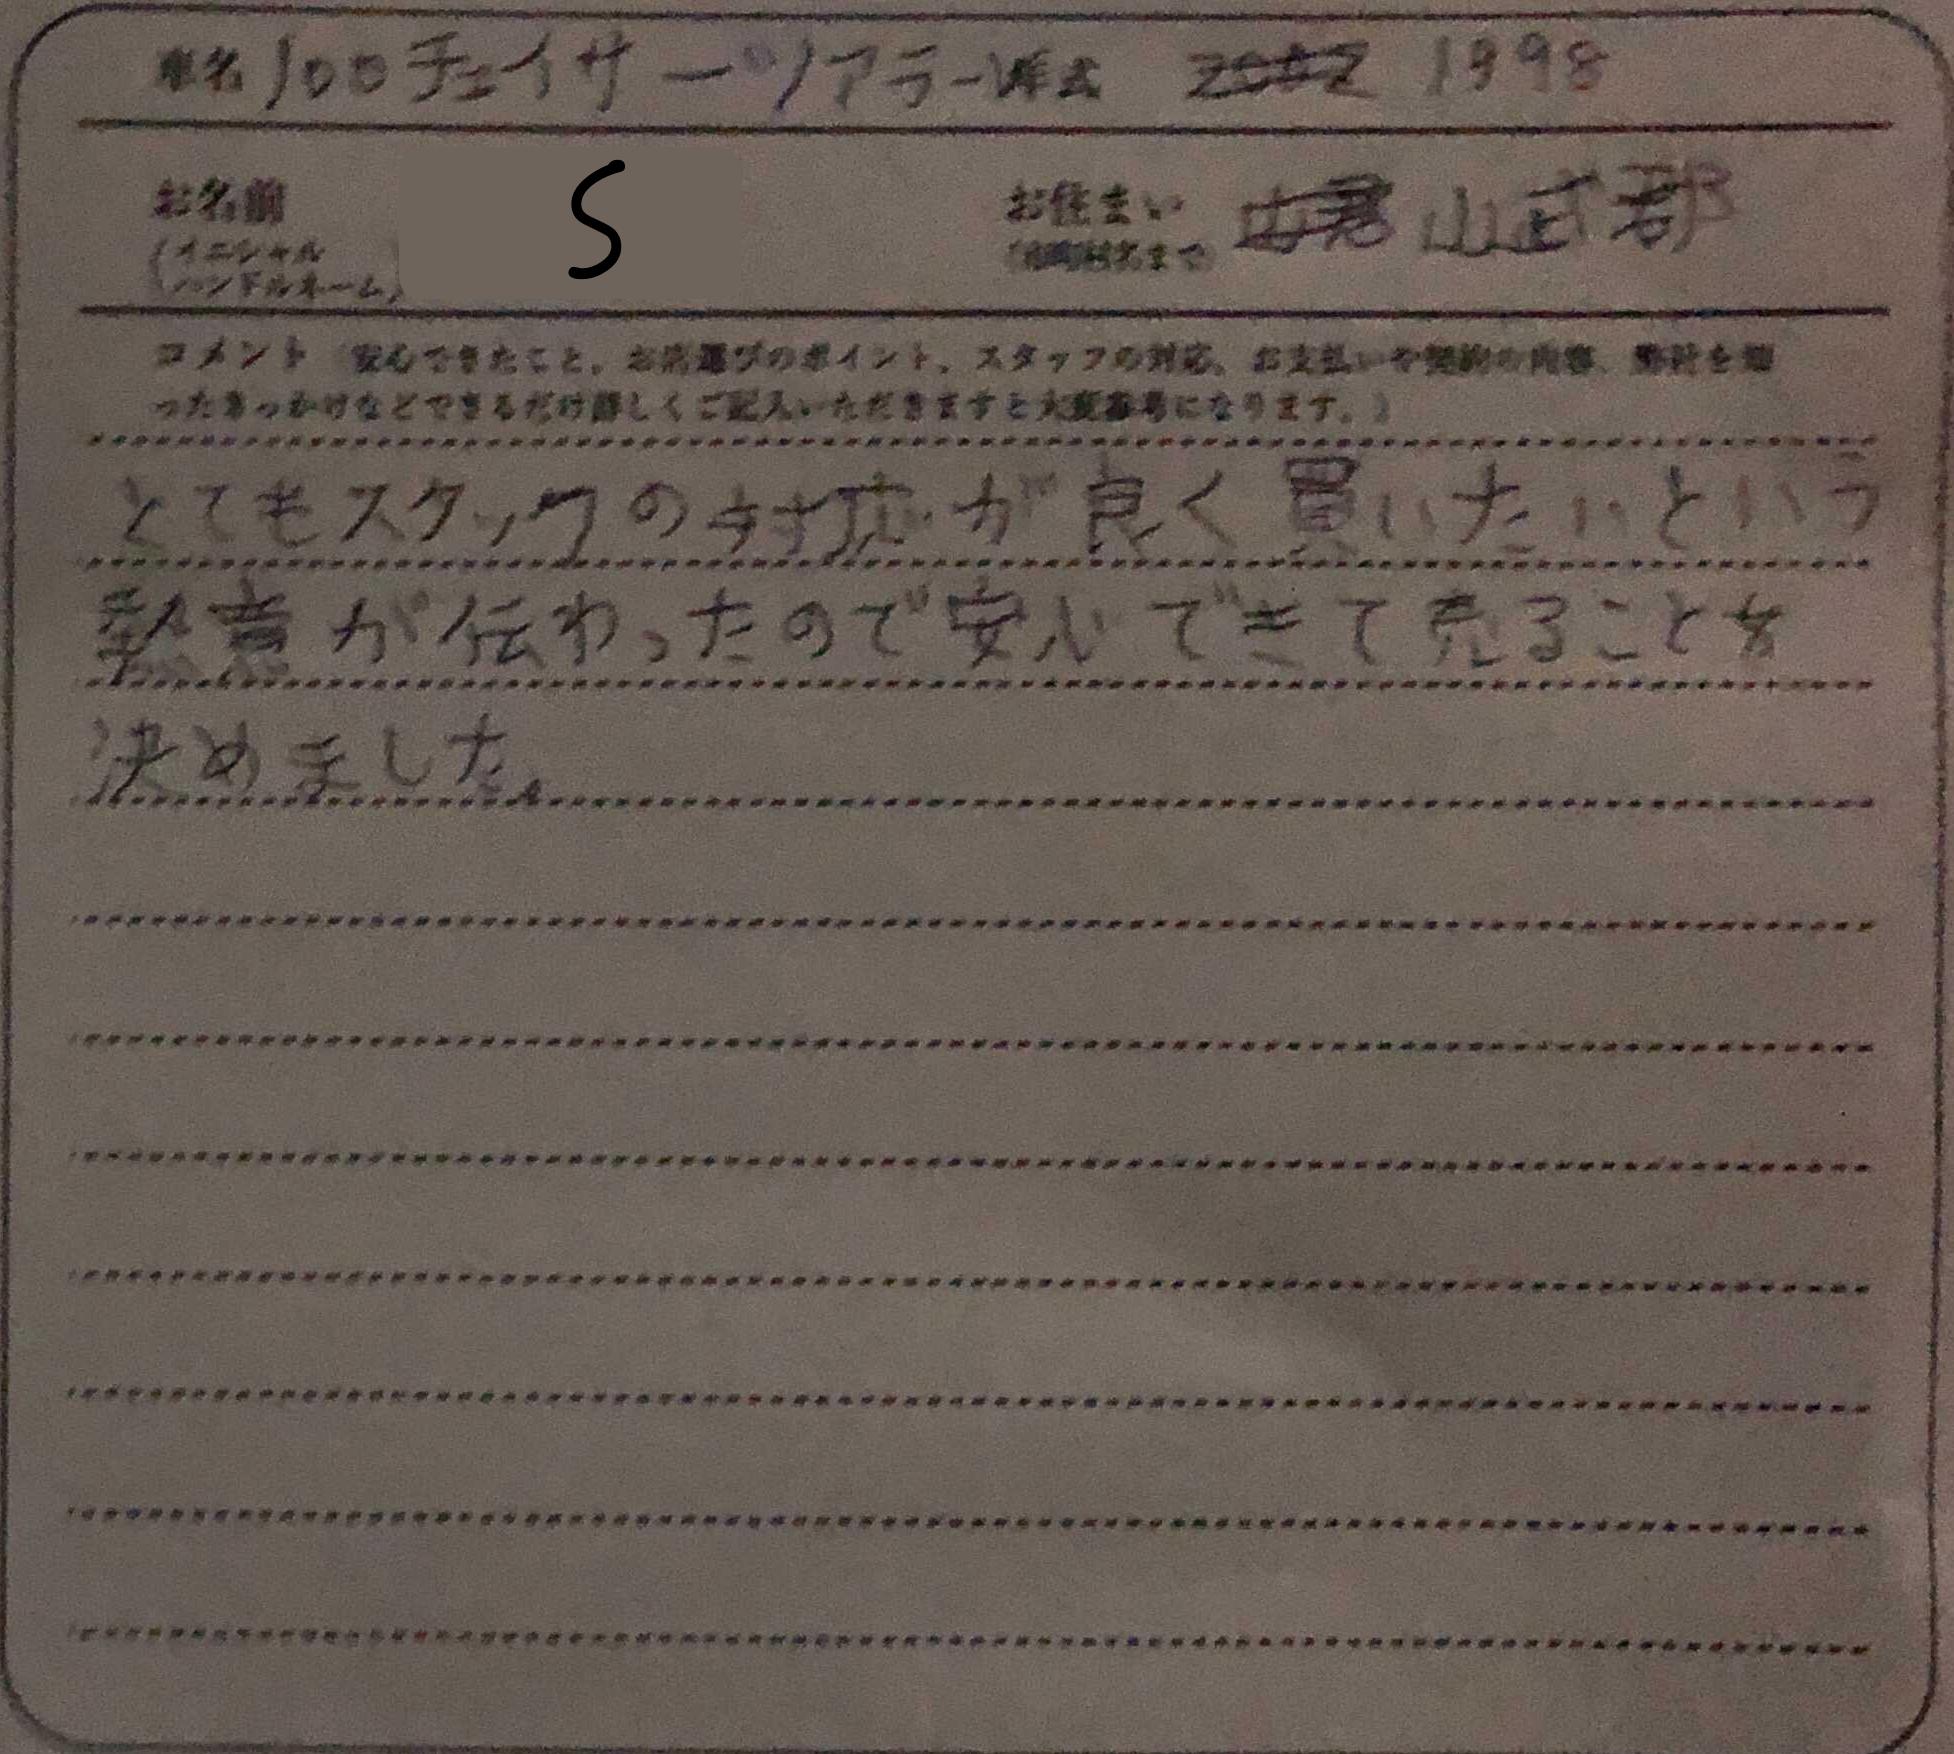 車名 100チェイサーツアラーV 年式 1998
お名前 S お住まい 山武郡
(イニシャル (市町村名まで)
ハンドルネーム)
コメント(安心できたこと、お店選びのポイント、スタッフの対応、お支払いや契約の内容、弊社を知
ったきっかけなどできるだけ詳しくご記入いただきますと大変参考になります。)
とてもスタッフの対応が良く買いたいという
熱意が伝わったので安心できて売ることを
決めました。